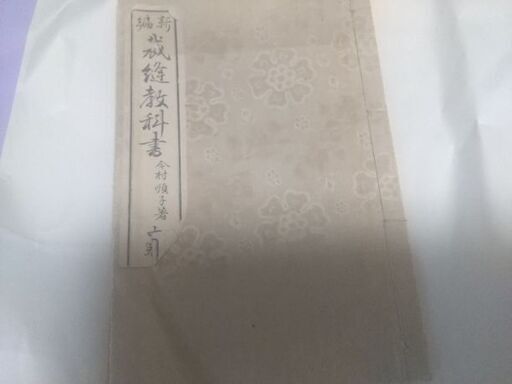 新編
裁縫教科書
今村順子著
上